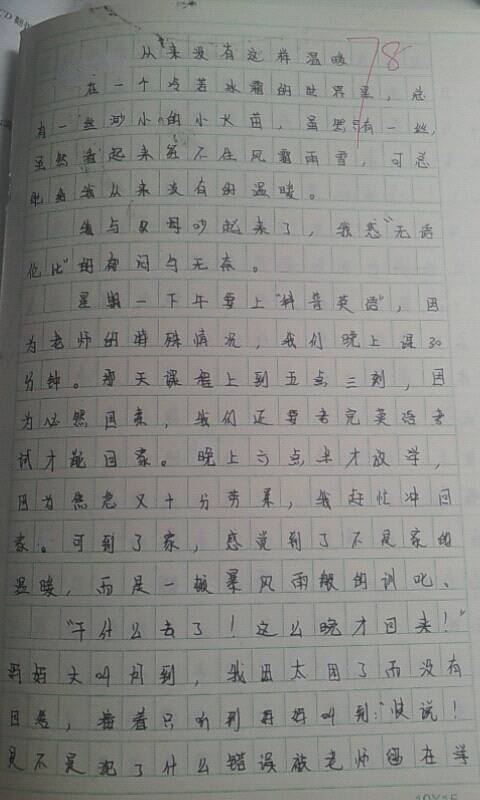 从来没有这样温暖
78
在一个冷若冰霜的世界里，总
有一丝渺小的小火苗，虽然只有一丝，
虽然看起来经不住风霜雨雪，可总
能给我从来没有的温暖。
我与父母吵起来了，我感"无语
伦比"的郁闷与无奈。
星期一下午要上"科普英语"，因
为老师的特殊情况，我们晚上课30
分钟。那天课程上到五点三刻，因
为必然因素，我们还要考完英语考
试才能回家。晚上六点半才放学，
因为焦急又十分劳累，我赶忙冲回
家。可到了家，感觉到了不是家的
温暖，而是一顿暴风雨般的训叱、
"干什么去了！这么晚才回来！"
妈妈大叫问到，我因太困了而没有
回答，接着只听到妈妈叫到："快说！
是不是犯了什么错误被老师留在学